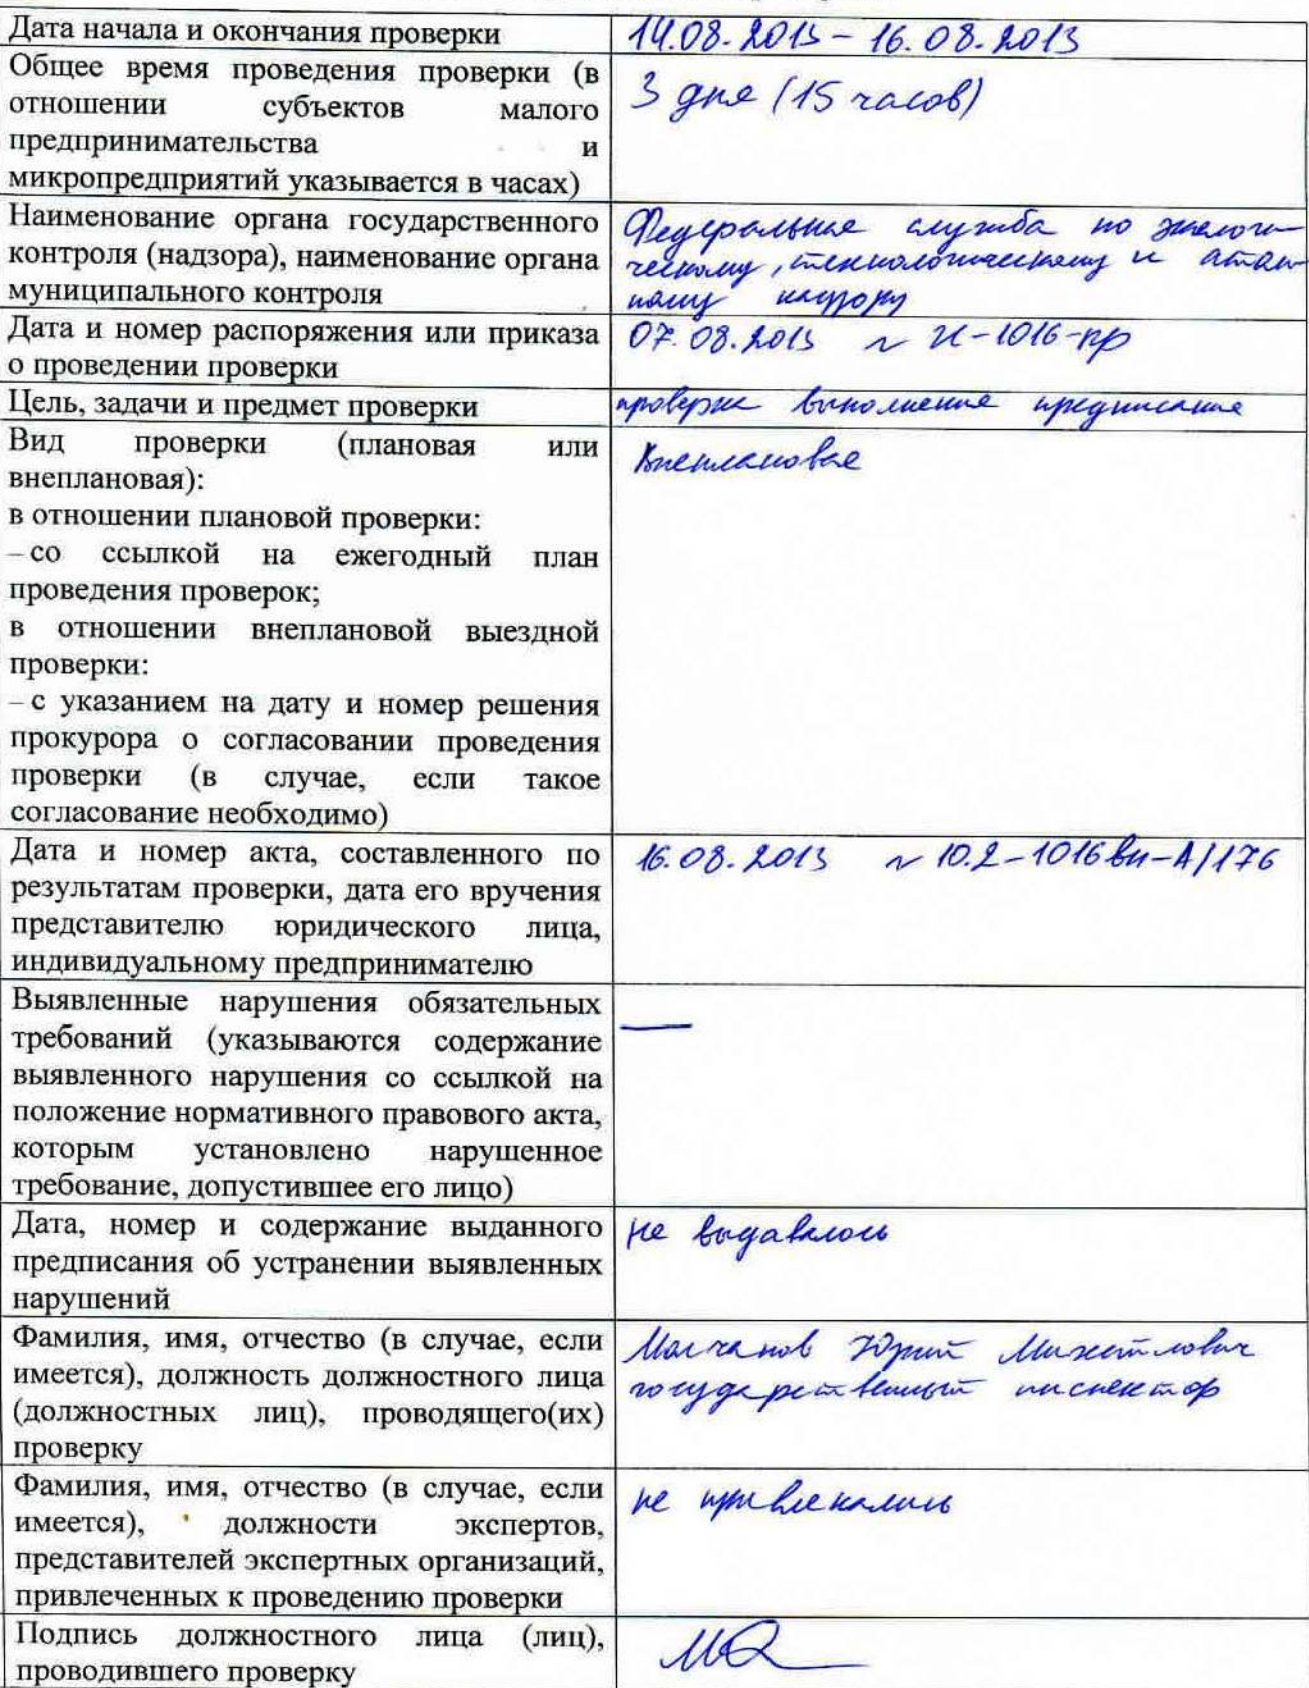 Дата начала и окончания проверки
14.08.2013 – 16.08.2013
Общее время проведения проверки (в
отношении субъектов малого
предпринимательства и
микропредприятий указывается в часах)
3 дня (15 часов)
Наименование органа государственного
контроля (надзора), наименование органа
муниципального контроля
Федеральная служба по экологи-
ческому, технологическому и атом-
ному надзору
Дата и номер распоряжения или приказа
о проведении проверки
07.08.2013 № И-1016-пр
Цель, задачи и предмет проверки
проверка выполнения предписания
Вид проверки (плановая или
внеплановая):
в отношении плановой проверки:
– со ссылкой на ежегодный план
проведения проверок;
в отношении внеплановой выездной
проверки:
– с указанием на дату и номер решения
прокурора о согласовании проведения
проверки (в случае, если такое
согласование необходимо)
Внеплановая
Дата и номер акта, составленного по
результатам проверки, дата его вручения
представителю юридического лица,
индивидуальному предпринимателю
16.08.2013 № 10.2-1016вн-А/176
Выявленные нарушения обязательных
требований (указываются содержание
выявленного нарушения со ссылкой на
положение нормативного правового акта,
которым установлено нарушенное
требование, допустившее его лицо)
—
Дата, номер и содержание выданного
предписания об устранении выявленных
нарушений
не выдавалось
Фамилия, имя, отчество (в случае, если
имеется), должность должностного лица
(должностных лиц), проводящего(их)
проверку
Молчанов Юрий Михайлович
государственный инспектор
Фамилия, имя, отчество (в случае, если
имеется), должности экспертов,
представителей экспертных организаций,
привлеченных к проведению проверки
не привлекались
Подпись должностного лица (лиц),
проводившего проверку